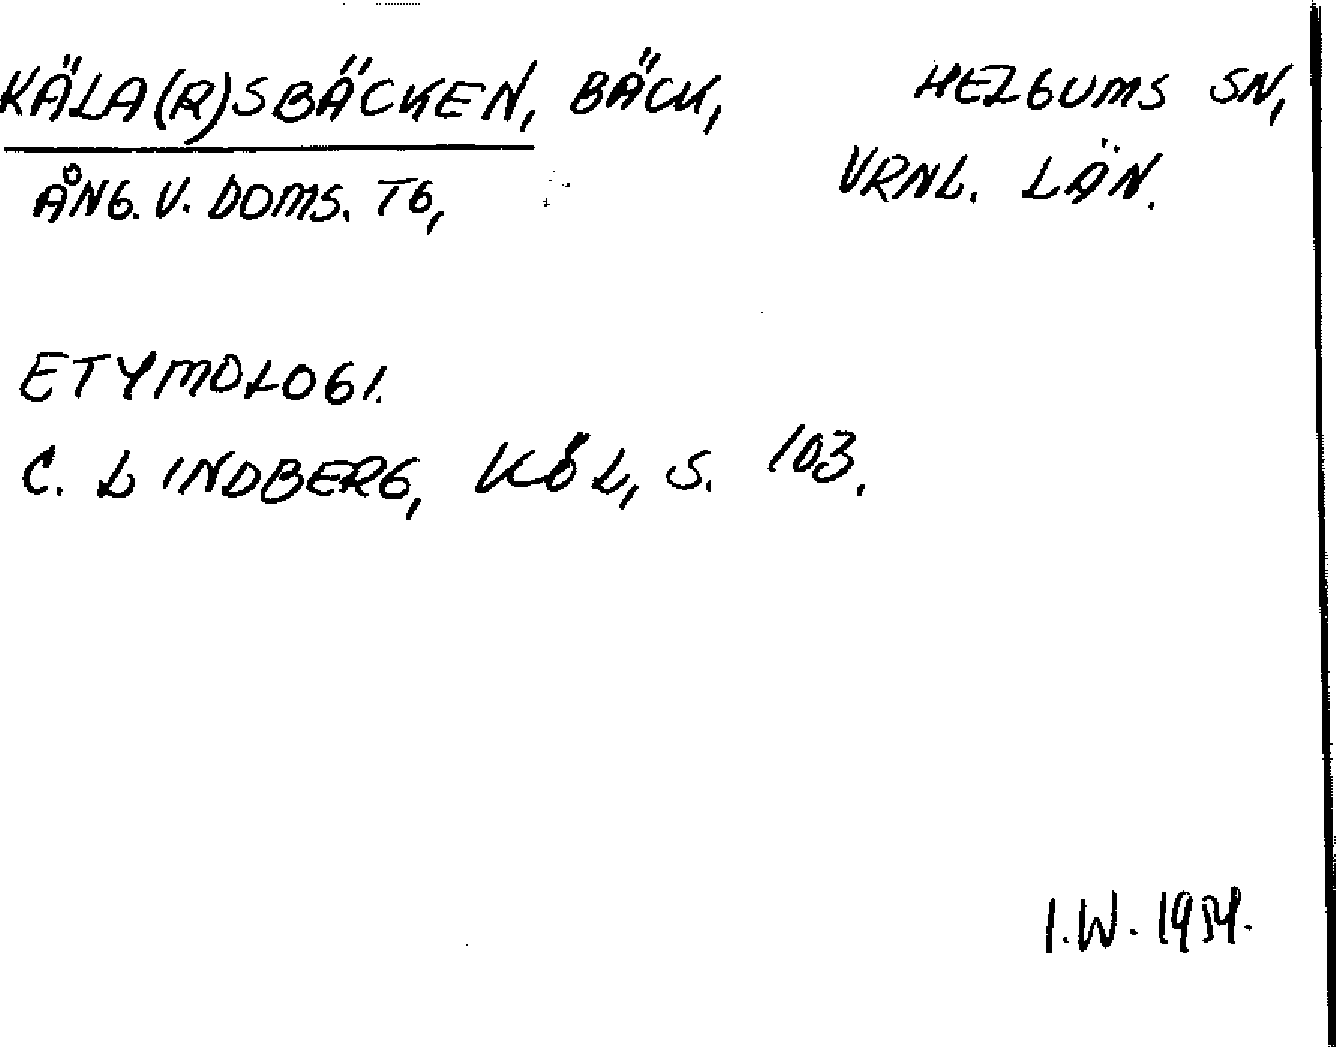 KÄLA(R)SBÄCKEN, BÄCK, HELGUMS SN,
ÅNG. V. DOMS. TG, VRNL. LÄN.
ETYMOLOGI.
C. LINDBERG, KÖL, S. 103.
I.W. 1954.